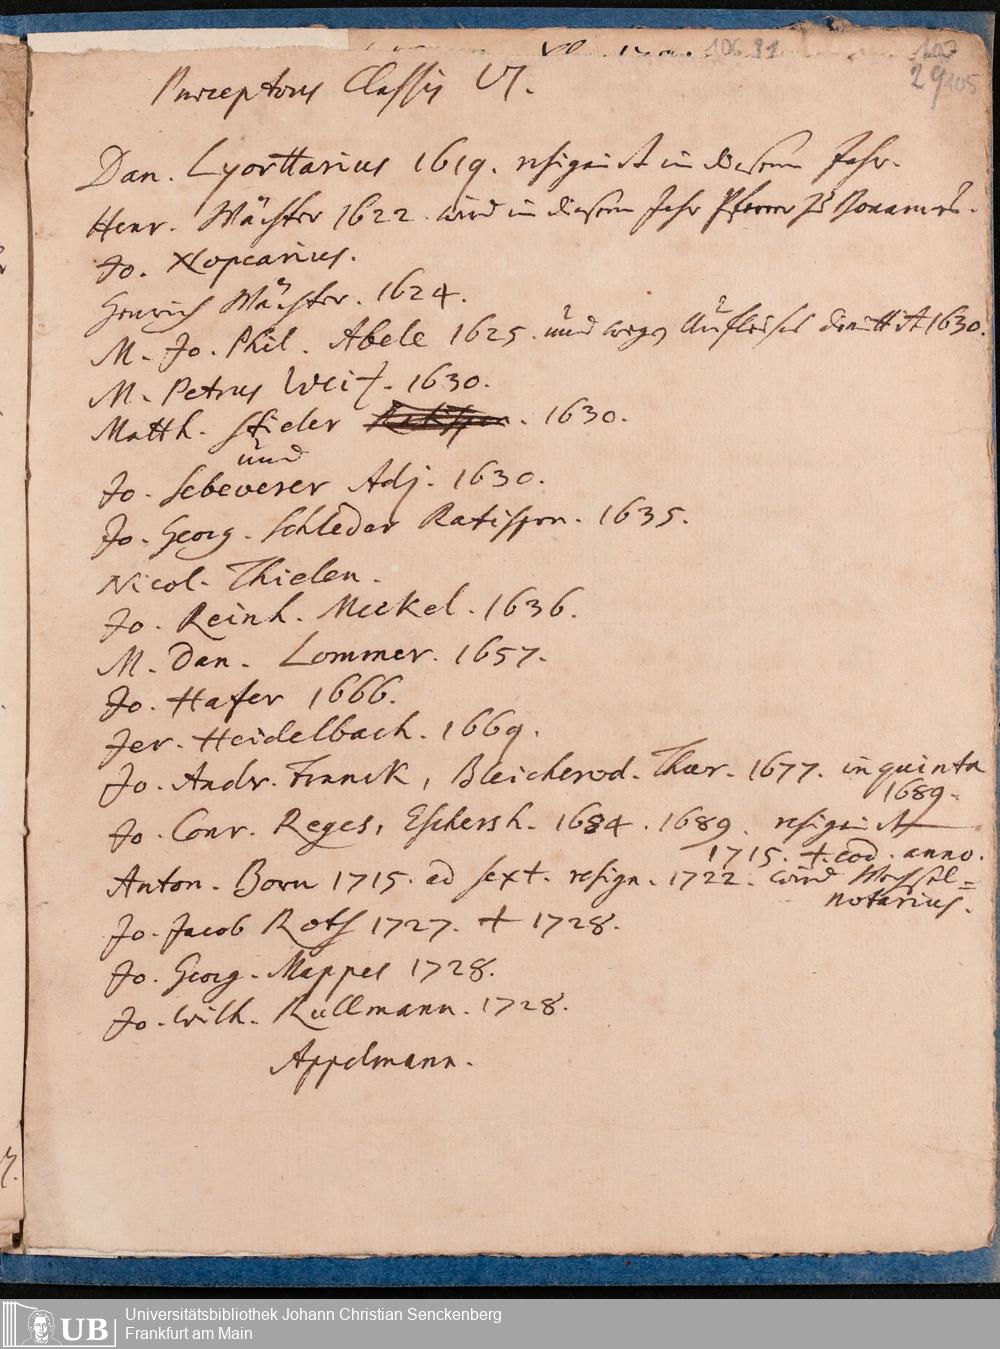 106.91 103
29 105
Praeceptores Classis VI.
Dan. Lyorttarius 1619. resignirt in diesem Jahr.
Henr. Wächter 1622. wird in diesem Jahr Pfarrer zu Bonames.
Jo. Xlopcarius.
Henrich Wächter. 1624.
M. Jo. Phil. Abele 1625. und wegen Unfleißes dimittirt 1630.
M. Petrus Weis. 1630.
Matth. Stieler. 1630.
und
Jo. Sebeverer Adj. 1630.
Jo. Georg. Schleder Ratispon. 1635.
Nicol. Thielen.
Jo. Reinh. Meckel. 1636.
M. Dan. Lommer. 1657.
Jo. Hafer 1666.
Jer. Heidelbach. 1669.
Jo. Andr. Franck, Bleicherod. Thur. 1677. in quinta
1689.
Jo. Conr. Reges, Eschersh. 1684. 1689. resignirt
1715. + eod. anno.
Anton. Born 1715. ad sext. resign. 1722. wird Wechsel=
notarius.
Jo. Jacob Roth 1727. + 1728.
Jo. Georg. Mappes 1728.
Jo. Wilh. Rullmann. 1728.
Appelmann.
UB
Universitätsbibliothek Johann Christian Senckenberg
Frankfurt am Main